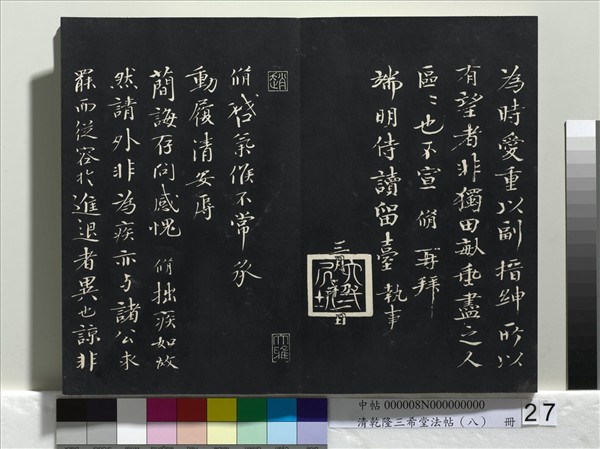 為時愛重以副搢紳所以
有望者非獨田畝垂盡之人
區〻也不宣 脩 再拜
端明侍讀留臺 執事
三月 日
趙
脩啓氣候不常承
動履清安辱
簡誨存問感愧 脩拙疾如故
然請外非為疾亦與諸公求
罷而從容於進退者異也諒非
大雅
中帖 000008N000000000
清乾隆三希堂法帖(八) 冊
27